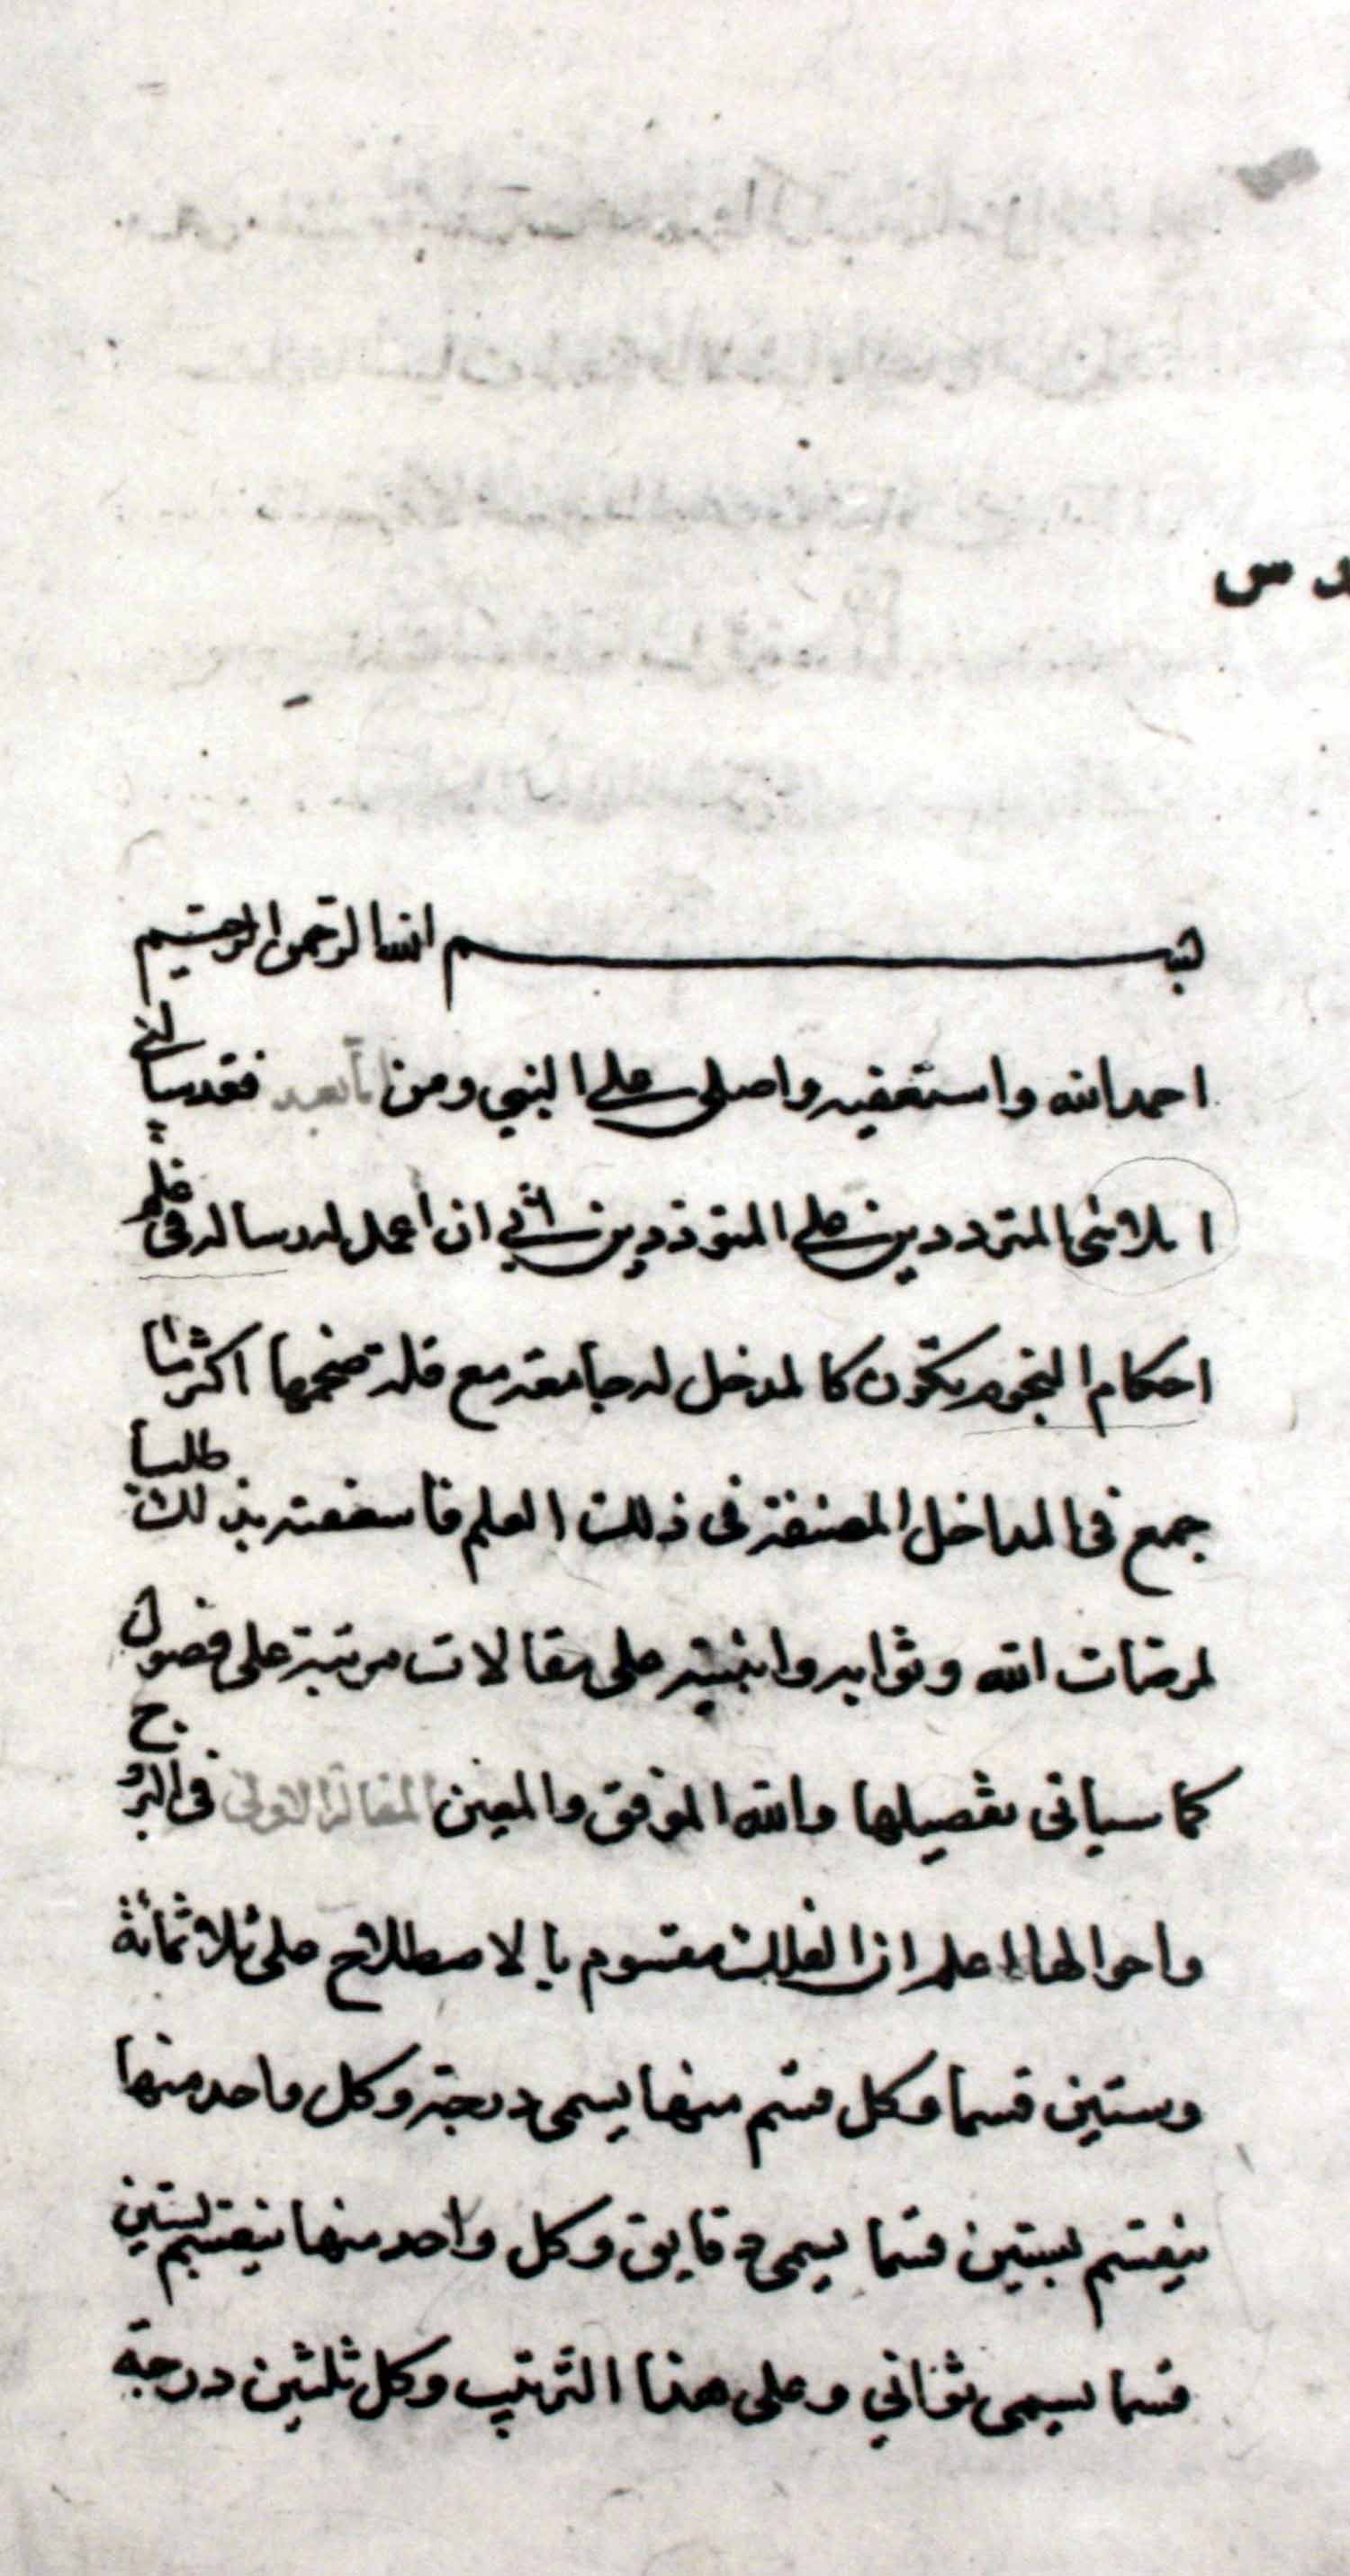 بسم الله الرحمن الرحيم
احمد الله واستغفيه واصلى على النبي ومن بعد فقد سالنى
المترددين على المتوددين الي ان اعمل له رساله في علم
احكام النجوم يكون كالمدخل له جامعة مع قلة حجمها اكثر ما
جمع في المداخل المصنفة في ذلك العلم فاسعفته بذلك طلبا
لمرضات الله وثوابه وابنيته على مقالات مرتبة على فصول
كما سياتى تفصيلها والله الموفق والمعين المقالة الاولى في البروج
واحوالها اعلم ان الفلك مقسوم بالاصطلاح على ثلاثمائة
وستين قسما وكل قسم منها يسمى درجة وكل واحد منها
ينقسم بستين قسما يسمى دقايق وكل واحد منها ينقسم بستين
قسما يسمى ثواني وعلى هذا الترتيب وكل ثلثين درجة